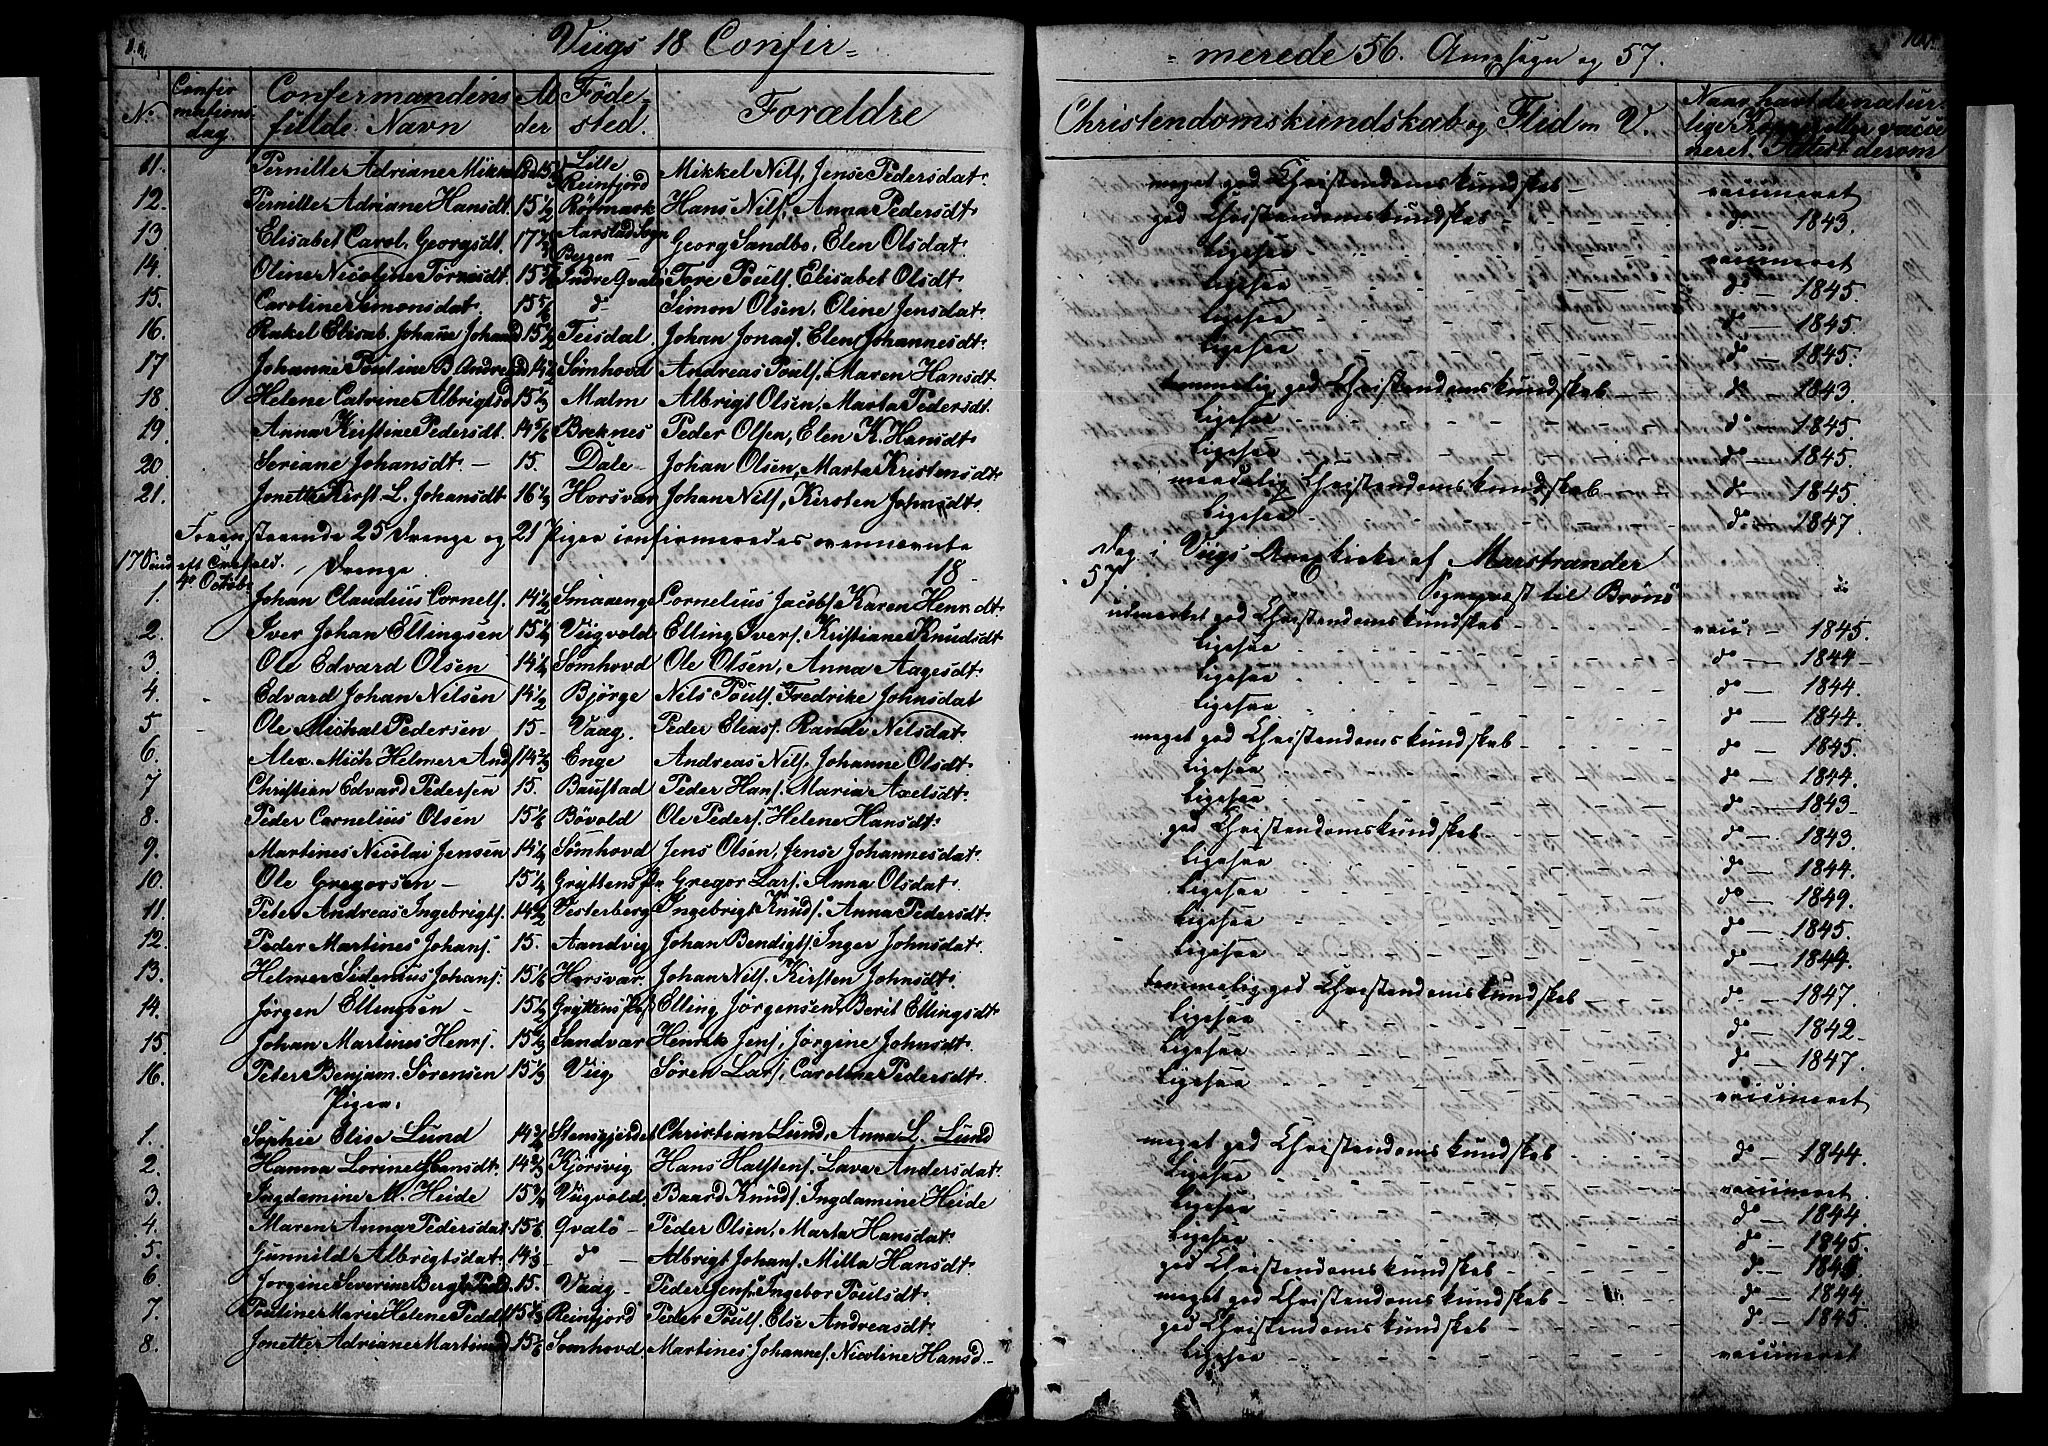 Viigs 18 Confir= =merede 56. Annexsogn og 57.
No Confirmations dag. Confirmandens fulde Navn Alder Fødested. Forældre Christendomskundskab og Flid m V. Naar havt de naturlige Kopper eller vaccineret. Attest derom
11. Pernille Adriane Mikke Lille Reinfjord Mikkel Nils, Jense Pedersdat. meget god Christendomskundskab - vaccineret
12. Pernille Adriane Hansdt. 15 1/2 Røsmark Hans Nils, Anna Pedersdt. god Christendomskundskab - do - 1843.
13 Elisabet Carol. Georgsdt. Aarstad Sogn Bergen Georg Sandbo, Elen Olsdat. Ligesaa vaccineret
14. Oline Nicoline Tørrisdt. Indre Qvalø Tore Pouls. Elisabet Olsdt. Ligesaa do - 1845.
15. Caroline Simonsdat. 15 5/6 do Simon Olsen, Oline Jensdat. Ligesaa do - 1845.
16. Rakel Elisab. Johañe Johand 15 1/2 Teisdal Johan Jonas, Elen Johannesdt. Ligesaa do - 1845.
17 Johanne Pouline B. Andread 14 1/2 Sømhovd Andreas Pouls. Maren Hansdt. temmelig god Christendomskundskab - do - 1843.
18 Helene Catrine Albrigtsd 15 1/3 Malm Albrigt Olsen, Marta Pedersdt. Ligesaa do - 1845.
19. Anna Kirstine Pedersdt. 14 5/6 Breknes Peder Olsen, Elen K. Hansdt. Ligesaa do - 1845.
20 Seriane Johansdt. - 15. Dale Johan Olsen, Marta Kristensdt. maadelig Christendomskundskab do - 1845.
21. Jonette Kirst. L. Johansdt 16 1/3 Horsvær Johan Nils, Kirsten Johnsdt. Ligesaa do - 1847.
Foranstaaende 25 Drenge og 21 Piger confirmeredes ovennævnte Dag i Viigs Annexkirke af Marstrander
17 Sønd. eft Trefold. 4de Octobr. Drenge. 18 57 Sogneprest til Brønø
1. Johan Claudius Cornels. 14 1/2 Smaaenge Cornelius Jacobs. Karen Henr dt. udmærket god Christendomskundskab - vacc. - 1845.
2. Iver Johan Ellingsen 15 1/2 Viigvold Elling Ivers. Kristiane Knudsdt Ligesaa do - 1844 -
3. Ole Edvard Olsen 14 1/2 Sømhovd Ole Olsen, Anna Aagesdt. Ligesaa do - 1844.
4. Edvard Johan Nilsen 14 1/2 Bjørge Nils Pouls. Fredrike Johnsdat Ligesaa do - 1844.
5 Ole Michal Pedersen 15 - Vaag. Peder Elias. Rande Nilsdat. meget god Christendomskundskab - do - 1845.
6. Alex. Mich Helmer And. 14 2/3 Enge Andreas Nils. Johanne Olsdt. Ligesaa do - 1844.
7 Christian Edvard Pedersen 15. Baustad Peder Hans. Maria Axelsdt. Ligesaa do - 1843 -
8. Peder Cornelius Olsen 15 1/6 Bøvold Ole Peders. Helene Hansdt. god Christendomskundskab - do - 1843.
9. Martines Nicolai Jensen 14 1/2 Sømhovd Jens Olsen, Jense Johannesdat. Ligesaa do - 1844.
10. Ole Gregorsen - 15 1/4 Gryttens Pr. Gregor Lars. Anna Olsdat. Ligesaa do - 1849.
11. Peter Andreas Ingebrigts. Vesterberg Ingebrigt Knuds. Anna Pedersdt. Ligesaa do - 1845.
12. Peder Martines Johans. 15. Aandvig Johan Bendigts. Inger Johnsdat. Ligesaa do - 1844.
13. Helmer Sidenius Johans. 15 1/6 Horsvær. Johan Nils. Kirsten Johnsdt. temmelig god Christendomskundskab - do - 1847.
14. Jørgen Ellingsen - 15 1/2 Gryttens Pr. Elling Jørgensen, Berit Ellingsdt. Ligesaa do - 1842 -
15. Johan Martines Henrs. 15 2/3 Sandvær Henrik Jens, Jørgine Johnsdt. Ligesaa do - 1847.
16. Peter Benjam. Sørensen 15 1/3 Viig Søren Lars, Caroline Pedersdt. Ligesaa vaccineret
Piger.
1. Sophie Elise Lund Stensgjerdet Christian Lund, Anna L. Lund meget god Christendomskundskab do - 1844.
2. Hanna Lorine Hansdt. Kjørsvig Hans Halstens. Lava Andersdat. Ligesaa vaccineret.
3. Ingdamine M. Heide Viigvold Baard Knuds. Ingdamine Heide Ligesaa do - 1844.
4. Maren Anna Pedersdat. 15 1/6 Qvalø - Peder Olsen, Marta Hansdat. Ligesaa do - 1845.
5. Gunnild Albrigtsdat. 14 1/3 do - Albrigt Johans. Milla Hansdt. god Christendomskundskab -
6 Jørgine Severine Bergt. Ped. 15. Vaag - Peder Jens, Ingebor Poulsdt. meget god Christendomskundskab - do - 1844.
7. Pouline Marie Helene Peddt Reinfjord Peder Pouls. Else Andreasdt. god Christendomskundskab - do - 1845.
8. Jonette Adriane Martined 15 1/6 Sømhovd. Martines Johannes. Nicoline Hansd - Ligesaa vaccineret